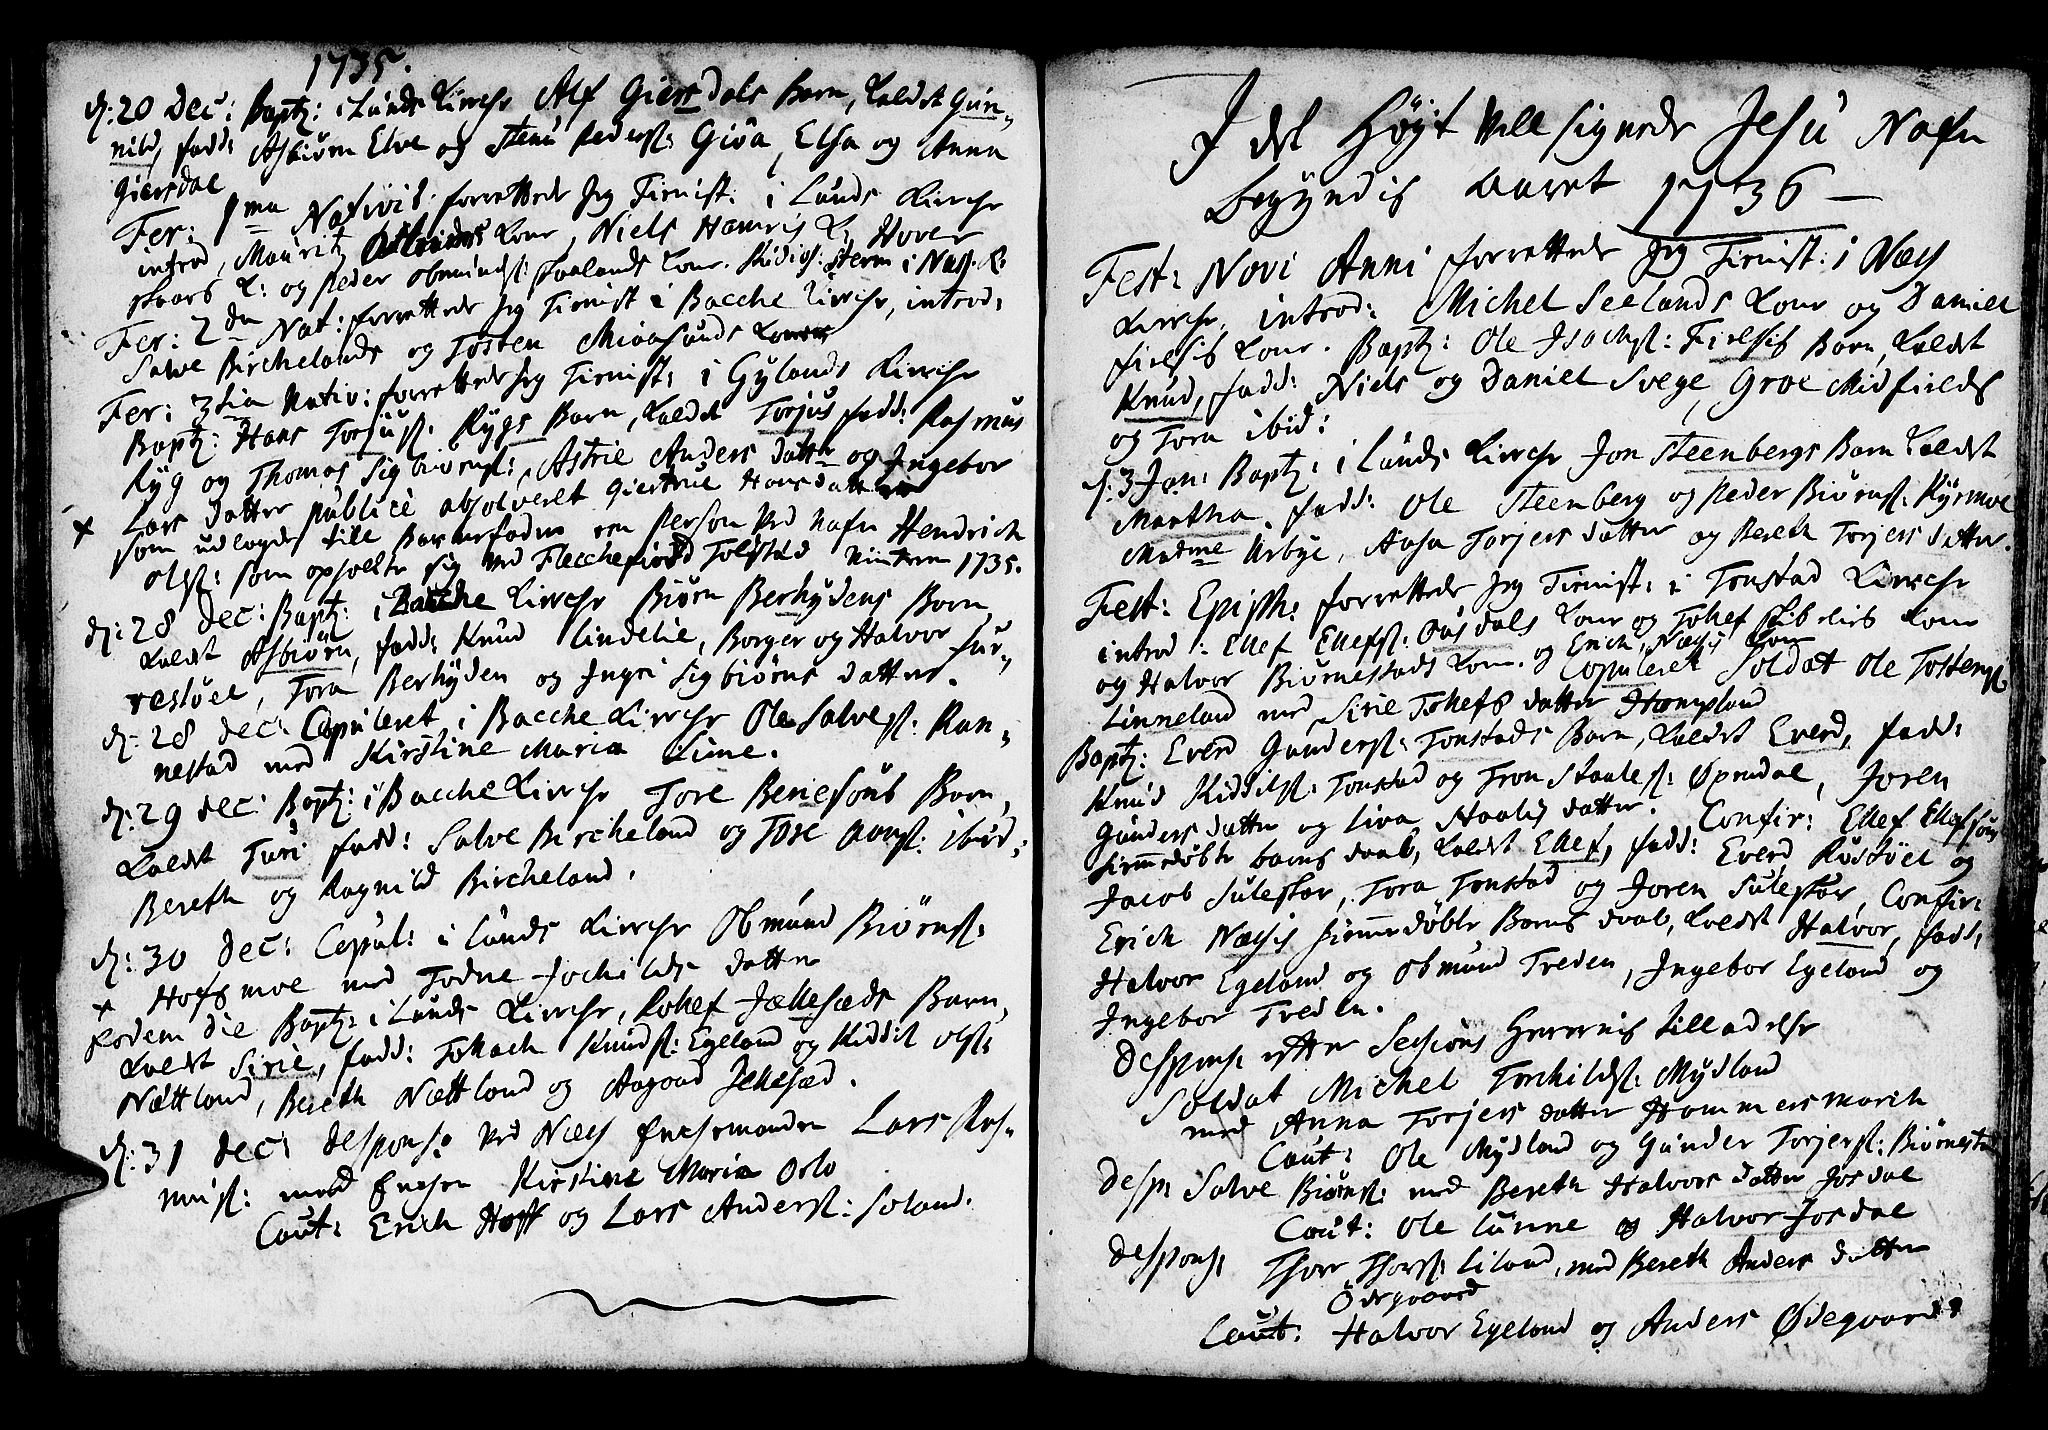 1735.
d: 20 Dec: Bapt: i Lunds Kirche Alf Giersdals Barn, kaldet Gun-
nild, fadd: Asbiørn Elve og Stenu Peders: Giøa, Elsa og Anna
Giersdal
Fer: 1ma Nativit: forrettede Jeg Tienist: i Lunds Kirche
introd, Mauritz Kone, Niels Hamris K: Hover
skaars K: og Peder Obmunds: Kone.
Fer: 2da Nat: forrettede Jeg Tienist i Bacche Kirche, introd:
Salve Birchelands og Tosten Moasunds Koner
Fer: 3tia Nativ: forrettede Jeg Tienist: i Gylands Kirche
Bapt: Hans Torjus: Rygs Barn, kaldet Torjus fadd: Rasmus
Ryg og Thomas Sigbiørns:, Astrie Anders datter og Ingebor
Lars datter publicè absolveret Giertrue Hans datter
som udlagde till Barnefader een Person ved Nafn Hendrich
Ols: som opholte sig ved Flecchefiord Tolsted Vinteren 1735.
d: 28 Dec: Bapt: i Bacche Kirche Biørn Berhydens Barn
kaldet Asbiørn, fadd: Knud Lindelie, Borger og Halvor Sur-
restøel, Tora Berhyden og Ingri Sigbiørns datter.
d: 28 Dec: Copuleret i Bacche Kirche Ole Salves: Ran-
nestad med Kirstine Maria Lime.
d: 29 Dec: Bapt: i Bacche Kirche Tore Beriesøns Barn,
kaldet Turi fadd: Salve Bircheland og Tore Aans: ibid:
Bereth og Ragnild Bircheland.
d: 30 Dec: Copul: i Lunds Kirche Obmund Biørns:
Hofsmoe med Todne Jochilds datter
Eodem die Bapt: i Lunds Kirche, Rolief Jællesæds Barn,
kaldet Sirie, fadd: Tollach Knuds: Egeland og Kiddil Ols:
Nættland, Bereth Nættland og Aagaad Jellesæd.
d: 31 Dec: Despons: ved Næss Enchemanden Lars Ras-
mus: med Enchen Kirstine Maria Oslo
Caut: Erich Hoff og Lars Anders: Soland.
I det Høyt Vellsignede Jesu Nafn
begyndis Aaret 1736 –
Fest: Novi Anni forrettede Jeg Tienist: i Næss
Kirche, introd: Michel Seelands Kone og Daniel
Fielsis Kone. Bapt: Ole Isachs: Fielsis Barn, kaldet
Knud, fadd: Niels og Daniel Svege, Groe Midfields
og Tora ibid:
d: 3 Jan: Bapt: i Lunds Kirche Jon Steenbergs Barn kaldet
Martha, fadd: Ole Steenberg og Peder Biørns: Rysmoe
Madme Urbye, Aasa Torjers datter og Bereth Torjers datter.
Fest: Epiph: forrettede Jeg Tienist: i Tonstad Kirche
introd: Ellef Ellefs: Ousdals Kone og Tollef Skiblies Kone
og Halvor Biørnestads Kone. og Erich Næsis Kone Copuleret Soldat Ole Tostens:
Linneland med Sirie Tollefs datter Hampland
Bapt: Everd Gunders: Tonstads Barn, kaldet Everd, fadd:
Knud Kiddils: Tonstad og Tron Staales: Øpendal, Joren
Gunders datter og Liva Staalis datter. Confir: Ellef Ellefsøns
hiemmedøbte barns daab, kaldet Ellef, fadd: Everd Røstøel og
Jacob Suleskar, Tora Tonstad og Joren Suleskar, Confir:
Erich Næsis hiemmedøbte Barns daab, kaldet Halvor, fadd:
Halvor Egeland og Obmund Treden, Ingebor Egeland og
Ingebor Treden.
Despons: efter Sessions Herrernis Tilladelse
Soldat Michel Torchilds: Mydland
med Anna Torjers datter Hommersmarch
Caut: Ole Mydland og Gunder Torjers: Biørnestad
Desp: Salve Biørns: med Bereth Halvors datter Josdal
Caut: Ole Lunne og Halvor Josdal
Despons: Thore Thors: Liland, med Bereth Anders datter
Ødegaard
Caut: Halvor Egeland og Anders Ødegaard